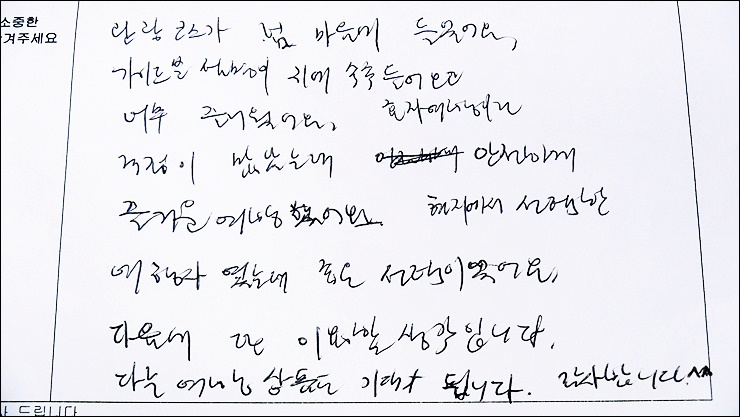 소중한
겨주세요
관광 코스가 넘 마음에 들었어요,
가이드분 설명이 귀에 쏙쏙 들어오고
너무 즐거웠어요, 혼자여행이라
걱정이 많았는데 안전하게
즐거운 여행 했어요. 현지에서 선택한
여행사 였는데 좋은 선택이었어요,
다음에 또 이용할 생각입니다,
다른 여행 상품도 기대가 됩니다. 감사합니다.^^
사 드립니다